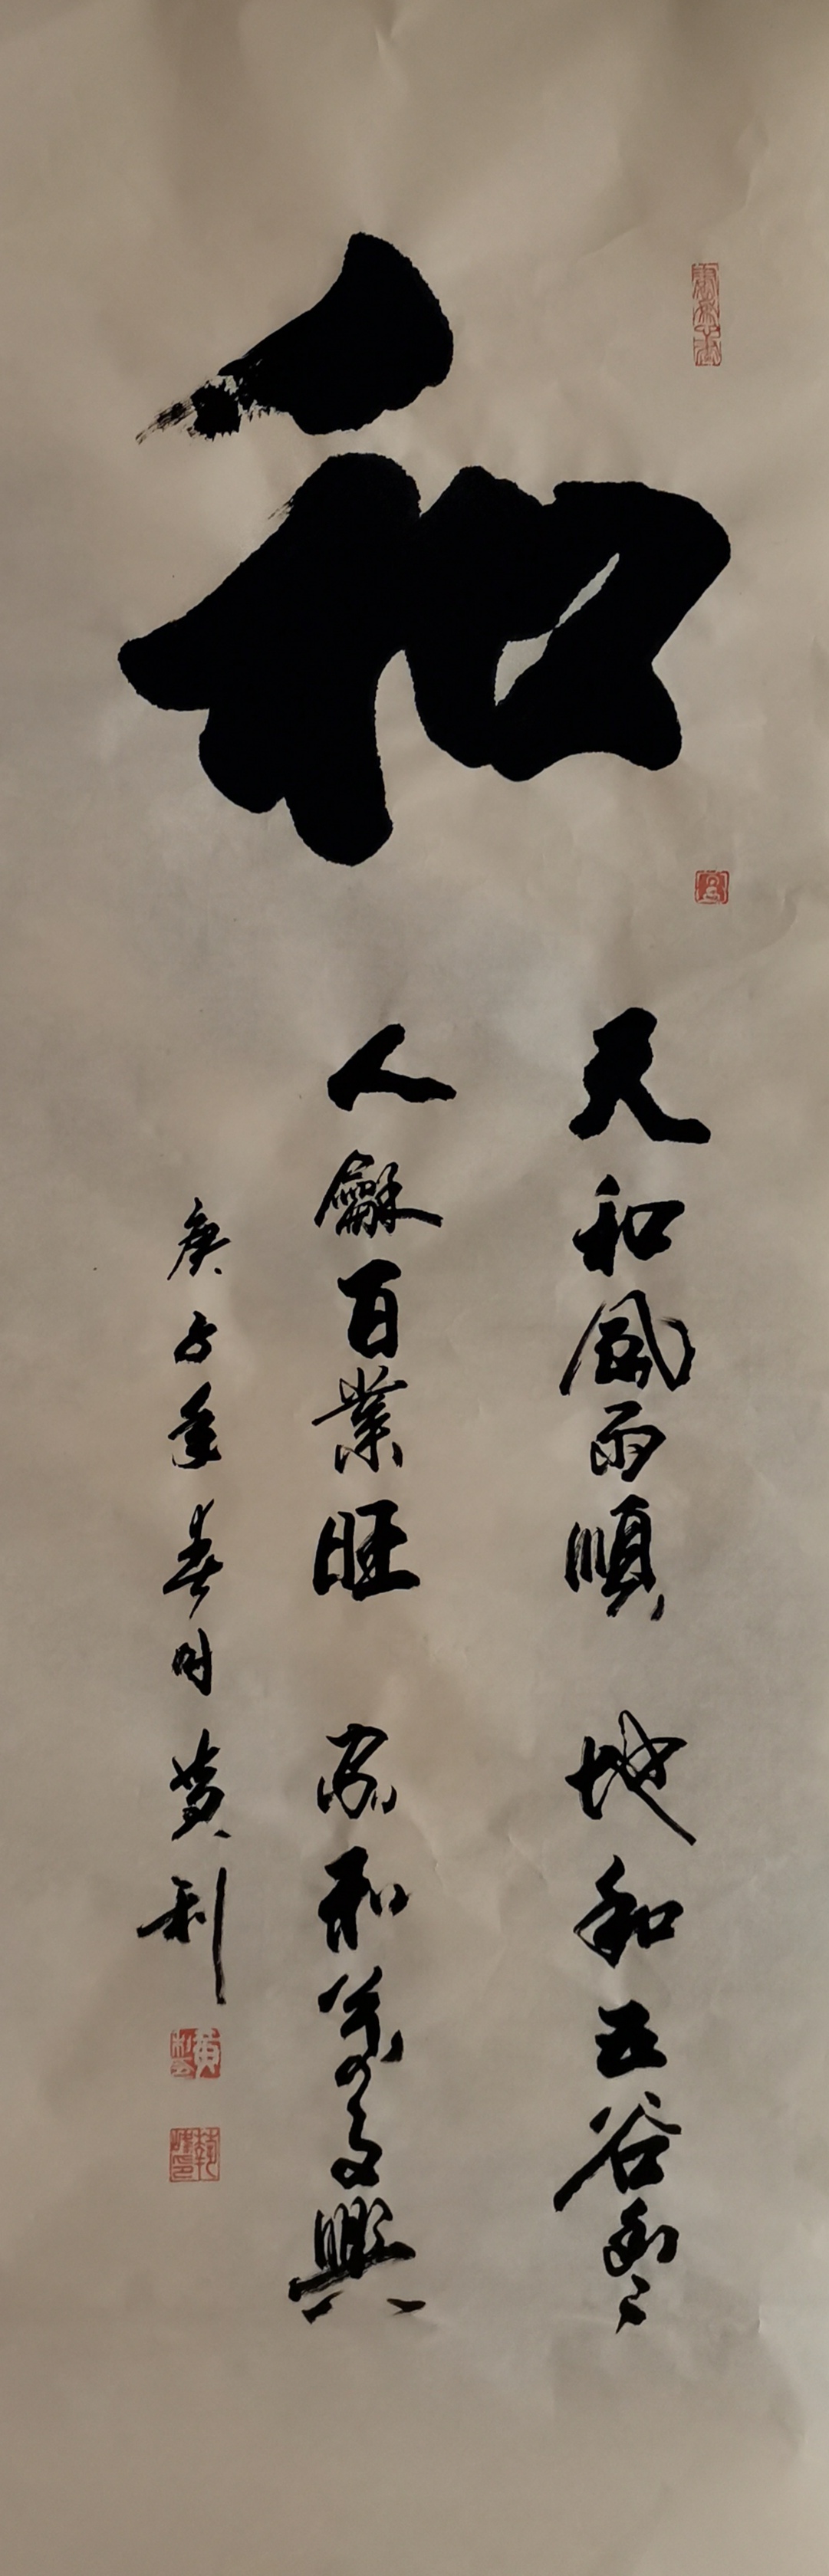 和
天和風雨順 地和五谷豐
人龢百業旺 家和萬事興
庚子年春月黄利